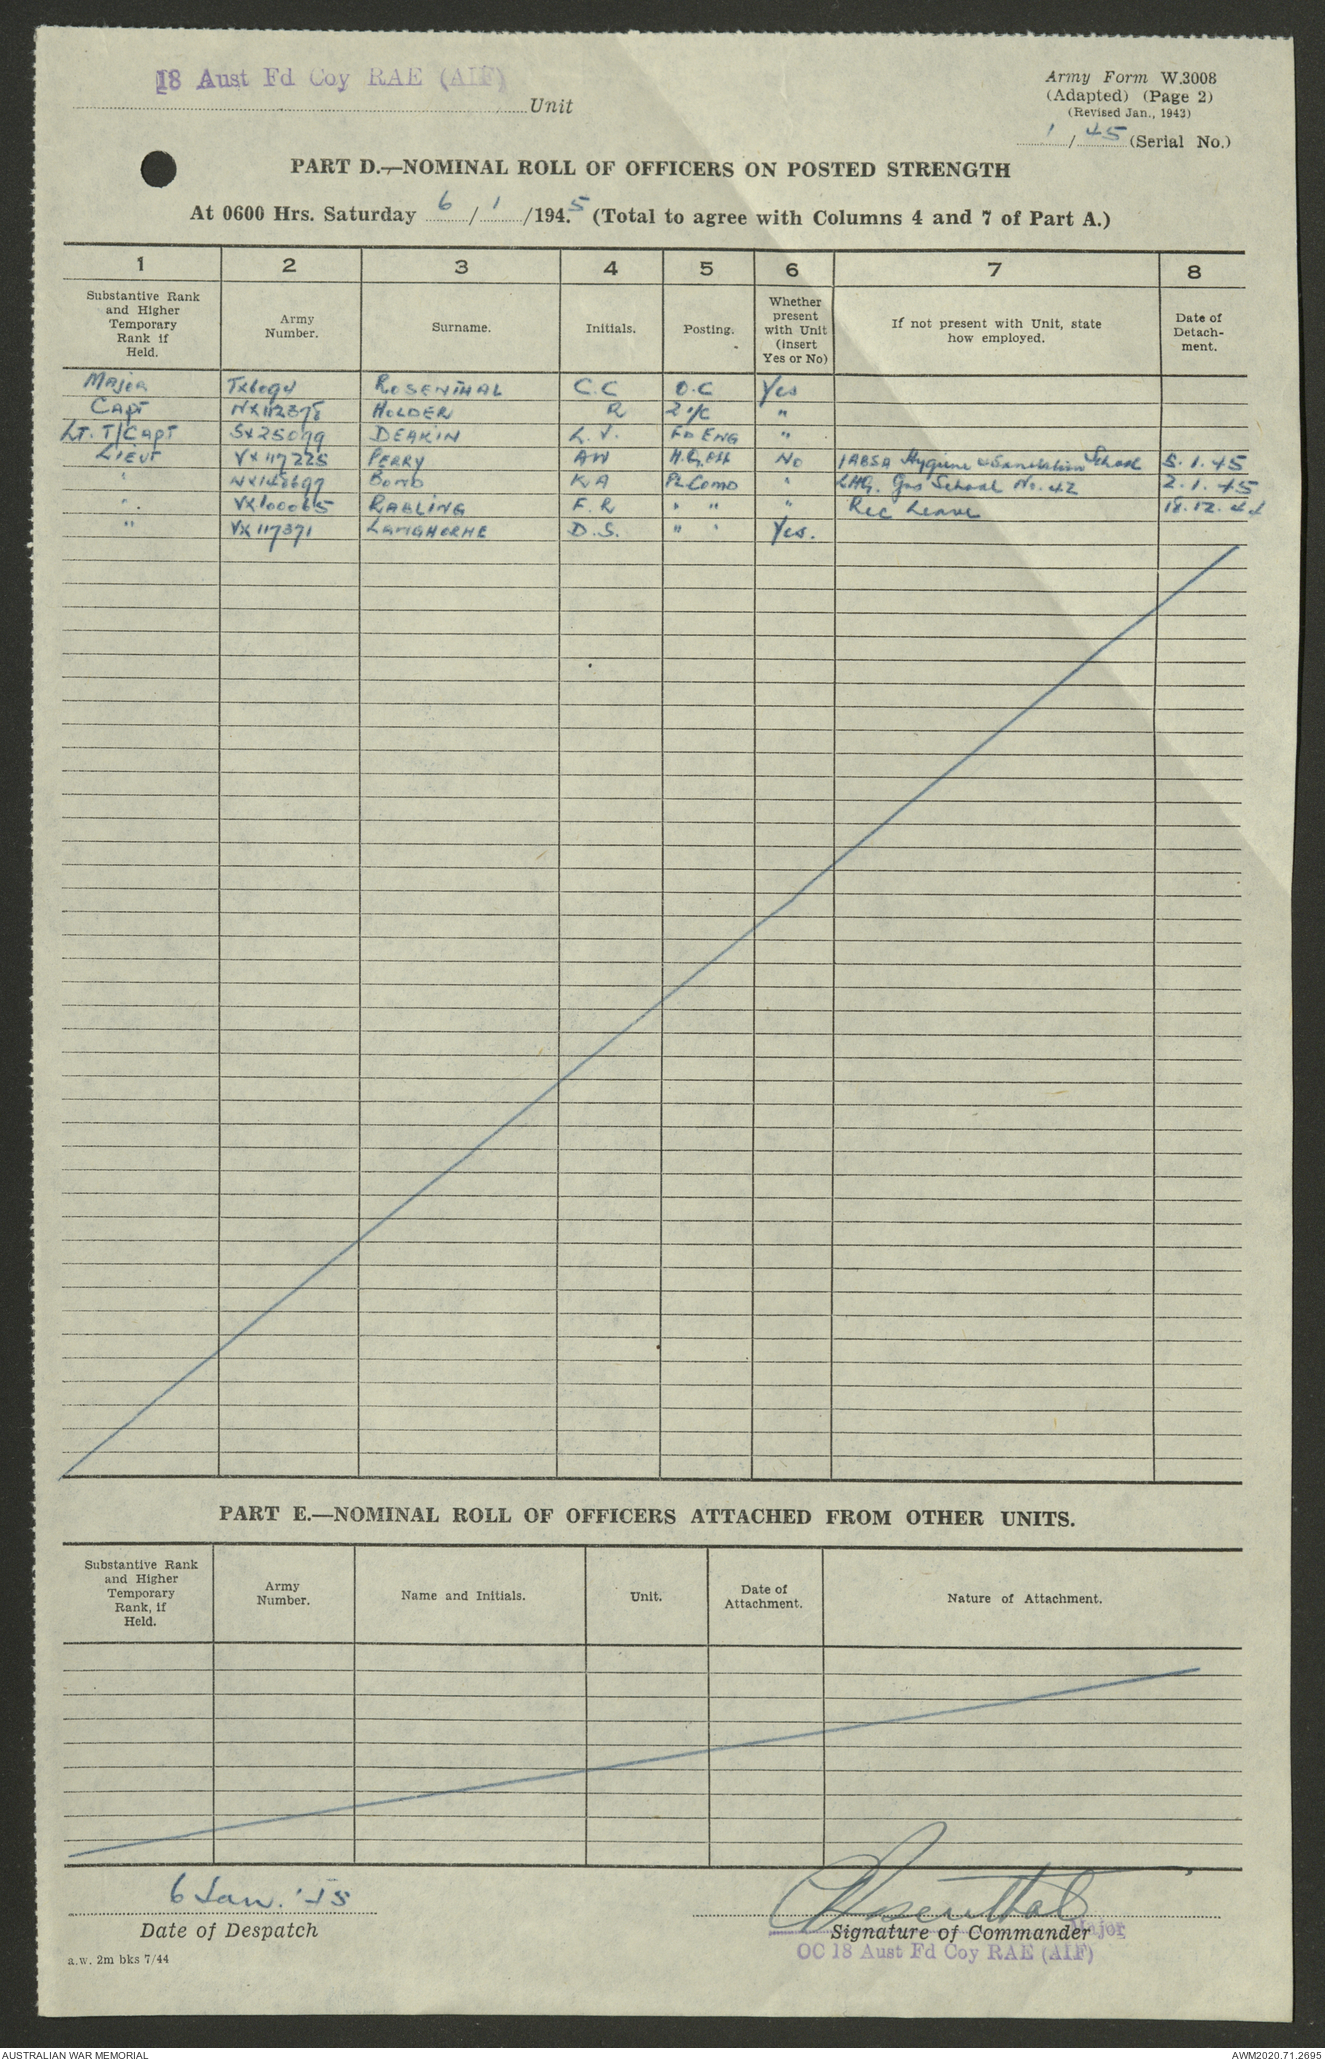 18 Aust Fd Coy RAE (AIF)
Unit
Army Form W.3008
(Adapted) (Page 2)
(Revised Jan., 1943)
1/45 (Serial No.)
PART D.—NOMINAL ROLL OF OFFICERS ON POSTED STRENGTH
At 0600 Hrs. Saturday 6/1/1945 (Total to agree with Columns 4 and 7 of Part A.)
1 2 3 4 5 6 7 8
Substantive Rank and Higher Temporary Rank if Held. Army Number. Surname. Initials. Posting. Whether present with Unit (insert Yes or No) If not present with Unit, state how employed. Date of Detach-ment.
Major TX6094 ROSENTHAL C.C O.C Yes
Capt HOLDER R 2 i/c "
Lt. T/Capt SX25099 DEAKIN L.V. FD ENG "
Lieut VX117225 PERRY AW No Hygiene & Sanitation School 5.1.45
" BOND K.A Pl Comd " LHQ. Gas School No. 42 2.1.45
" VX100065 RABLING F.R " " " Rec Leave 18.12.44
" VX117371 LANGHORNE D.S. " " Yes.
PART E.—NOMINAL ROLL OF OFFICERS ATTACHED FROM OTHER UNITS.
Substantive Rank and Higher Temporary Rank, if Held. Army Number. Name and Initials. Unit. Date of Attachment. Nature of Attachment.
6 Jan. '45
Date of Despatch
CRosenthal
Signature of Commander
Major
OC 18 Aust Fd Coy RAE (AIF)
a.w. 2m bks 7/44
AUSTRALIAN WAR MEMORIAL
AWM2020.71.2695